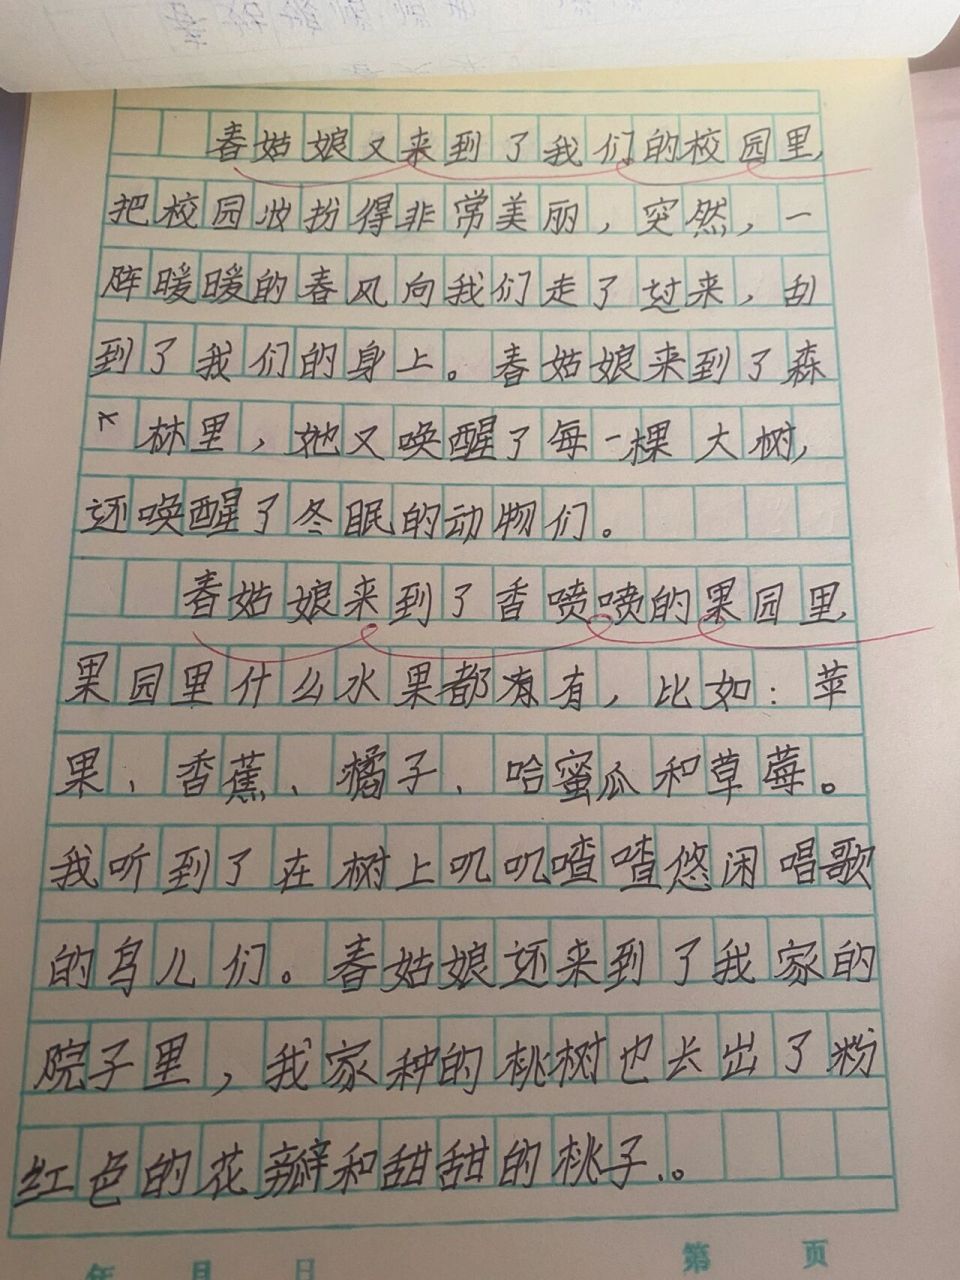 春姑娘又来到了我们的校园里,
把校园妆扮得非常美丽，突然，一
阵暖暖的春风向我们走了过来，刮
到了我们的身上。春姑娘来到了森
林里，她又唤醒了每一棵大树，
还唤醒了冬眠的动物们。
春姑娘来到了香喷喷的果园里,
果园里什么水果都有有，比如：苹
果、香蕉、橘子、哈蜜瓜和草莓。
我听到了在树上叽叽喳喳悠闲唱歌
的鸟儿们。春姑娘还来到了我家的
院子里，我家种的桃树也长出了粉
红色的花瓣和甜甜的桃子.。
年 月 日 第 页